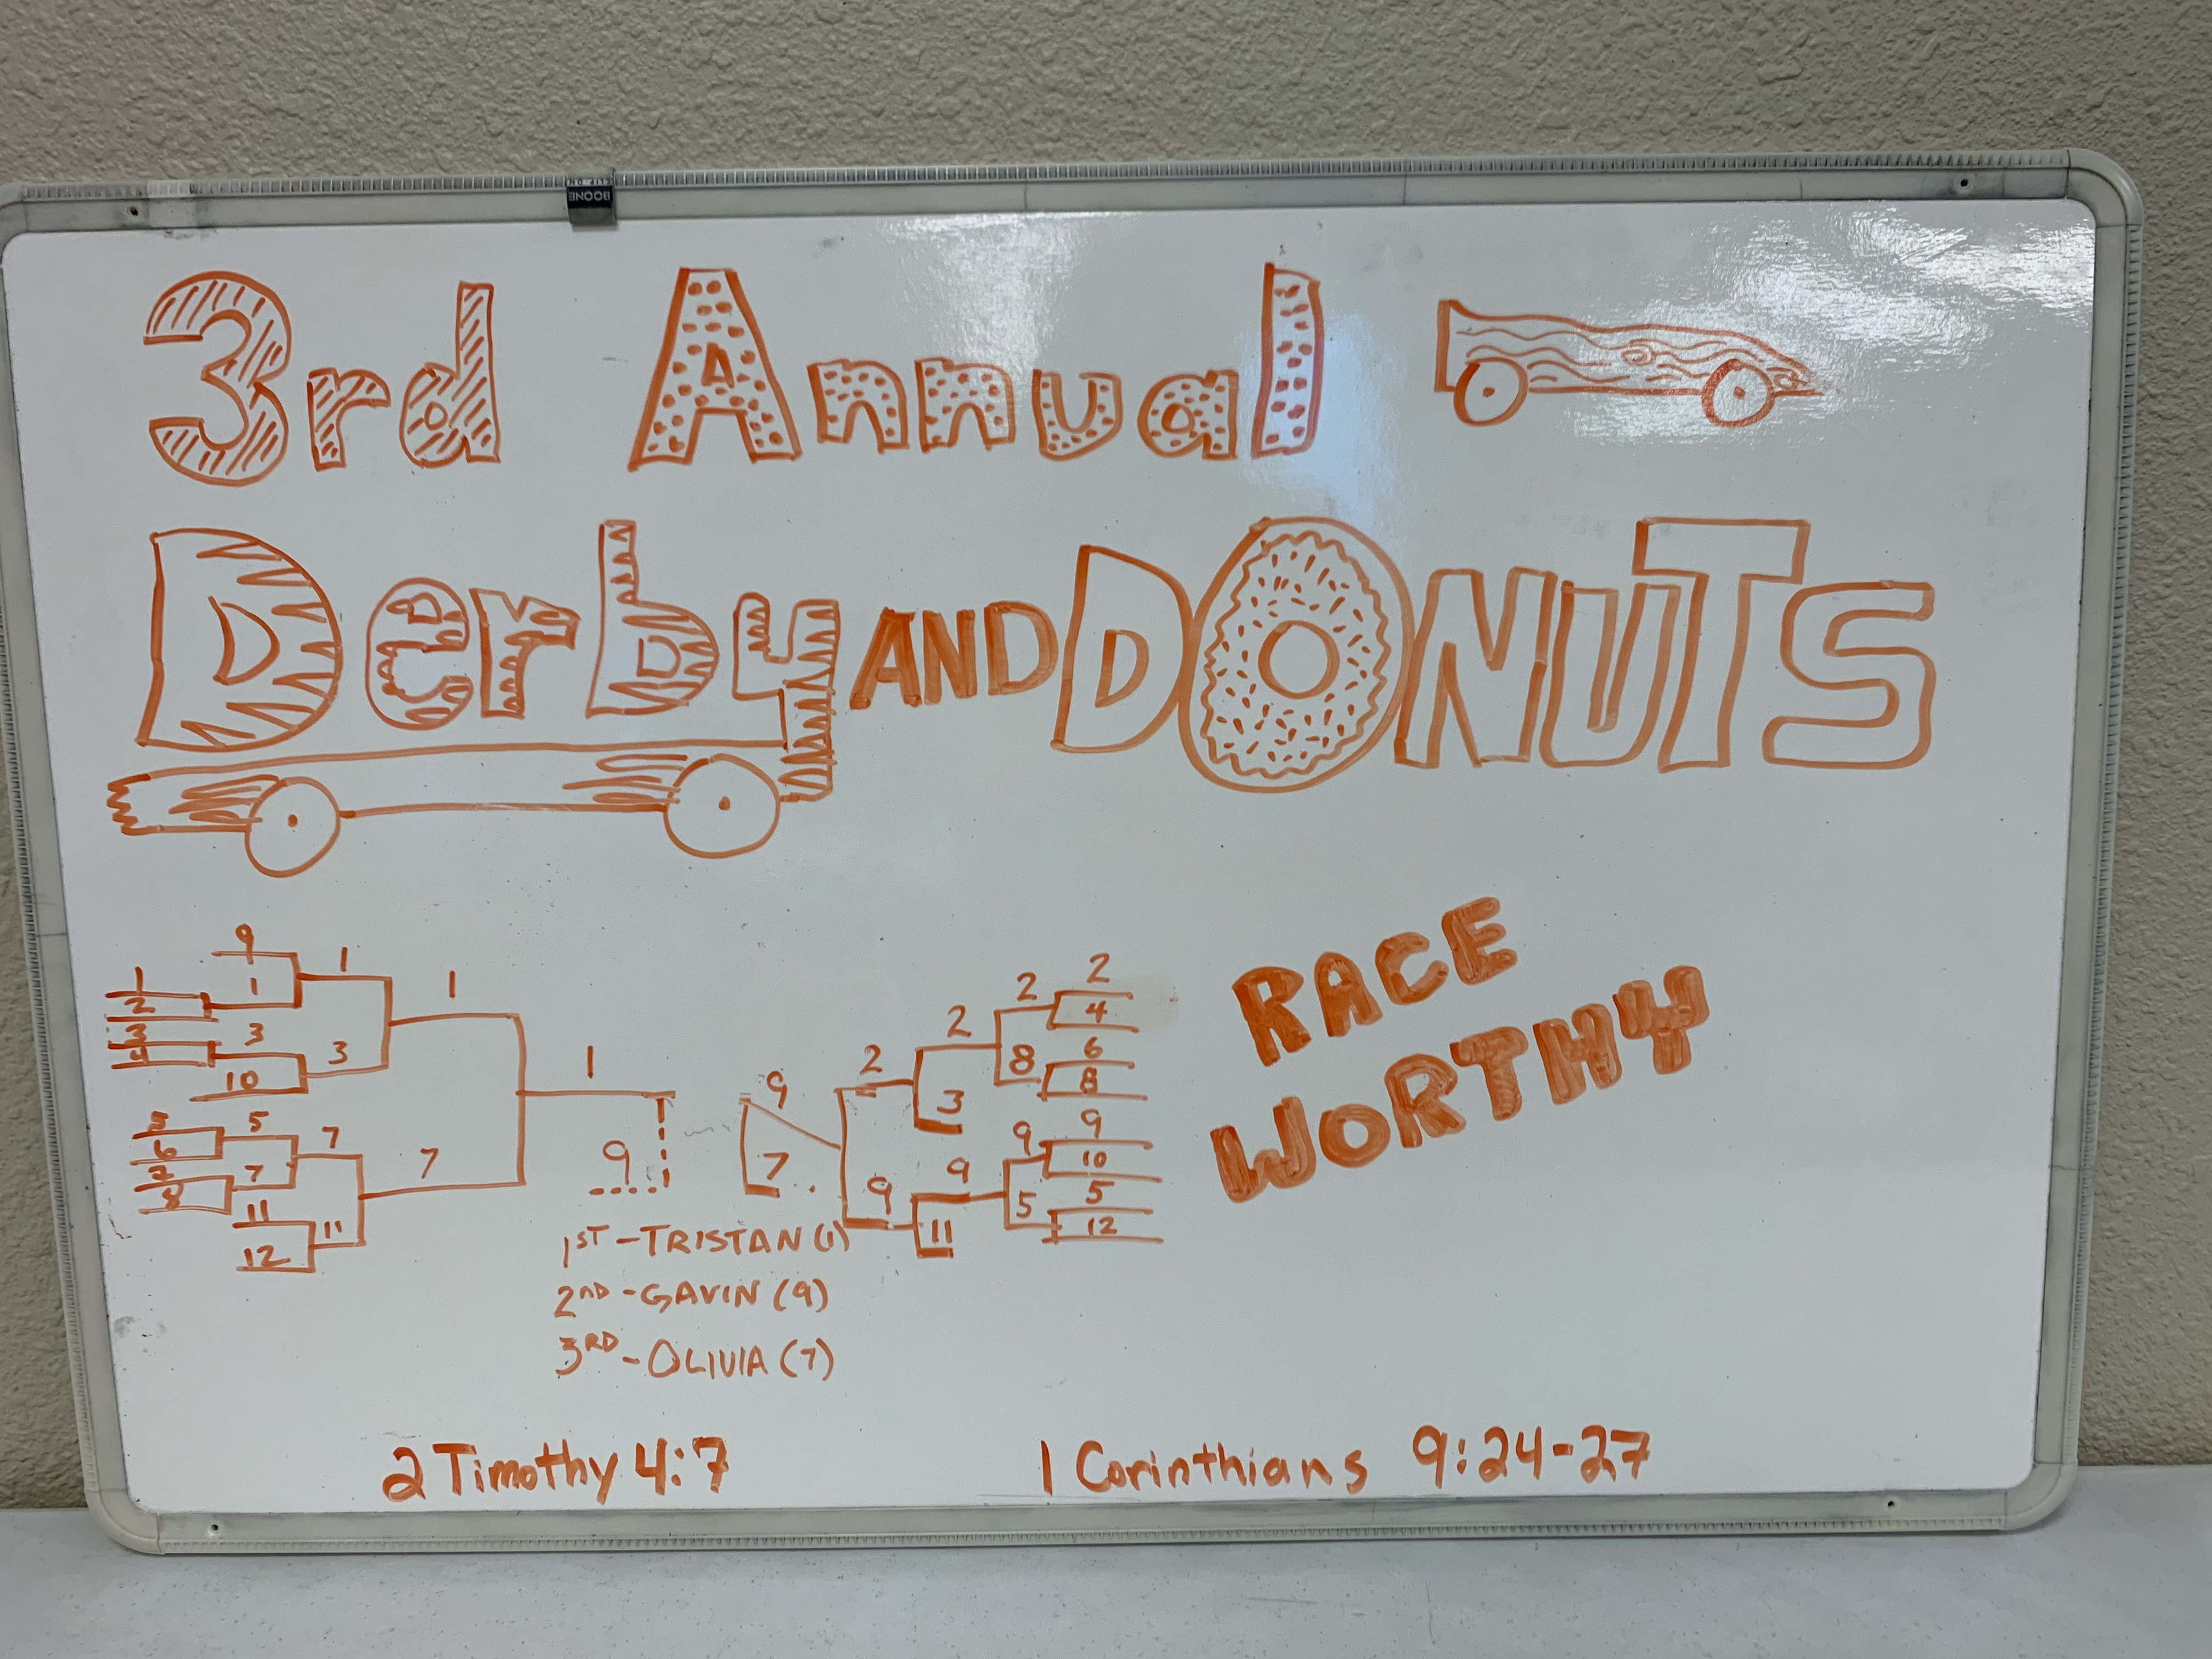 CLIP ON
BOONE
3rd Annual
Derby AND DONUTS
RACE
WORTHY
9
1
1
1
2
1
3
3
4
3
10
1
7
5
6
5
7
7
8
7
11
12
11
9
9
7
2
2
2
2
4
8
6
8
3
9
9
9
9
10
5
5
12
11
1ST - TRISTAN (1)
2ND - GAVIN (9)
3RD - OLIVIA (7)
2 Timothy 4:7
1 Corinthians 9:24-27